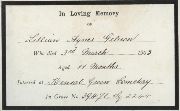 In Loving Memory
OF
Lilian Agnes Gibson
Who Died 3rd March 1913
Aged 11 Months.
Interred at Kensal Green Cemetery
In Grave No.